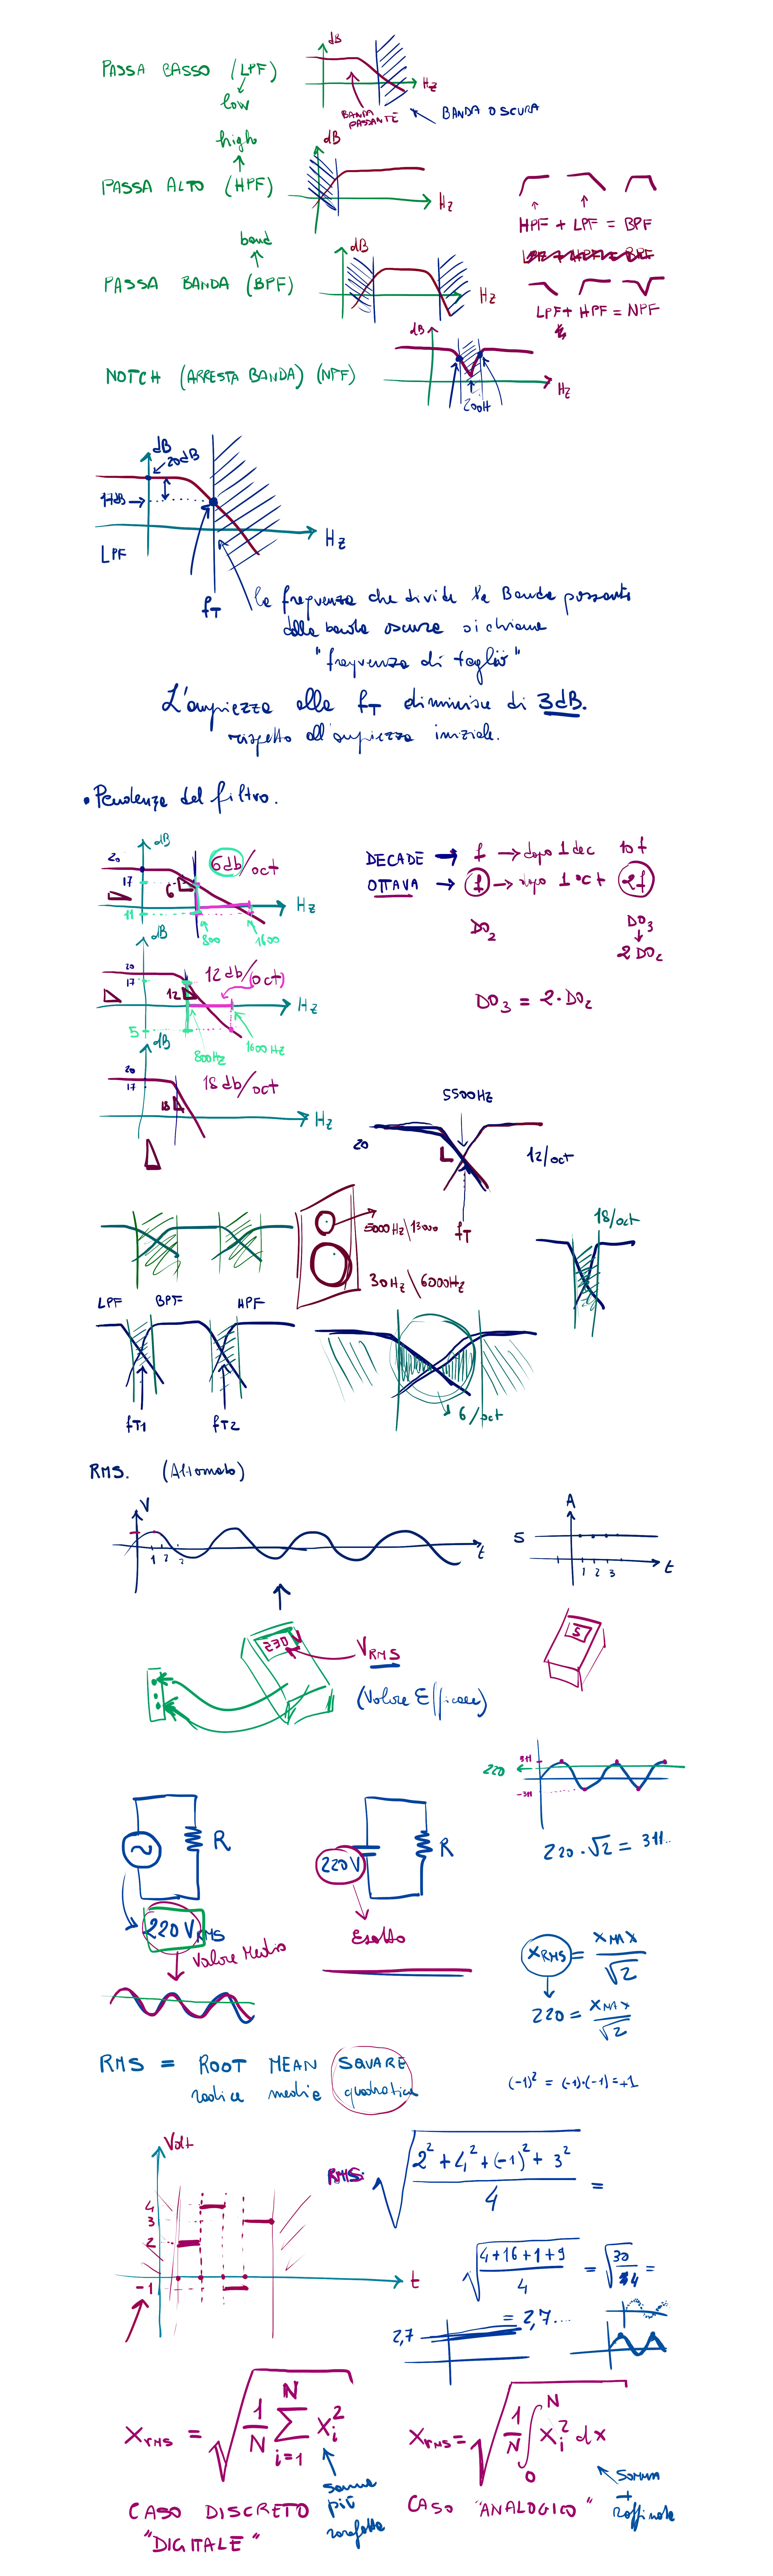 PASSA BASSO (LPF)
low
dB
Hz
BANDA PASSANTE
BANDA OSCURA
high
PASSA ALTO (HPF)
dB
Hz
HPF + LPF = BPF
band
PASSA BANDA (BPF)
dB
Hz
LPF + HPF = NPF
NOTCH (ARRESTA BANDA) (NPF)
dB
Hz
200H
dB
20dB
17dB
Hz
LPF
fT
la frequenza che divide la Banda passante
dalla banda oscura si chiama
"frequenza di taglio"
L'ampiezza alla fT diminuisce di 3dB.
rispetto all'ampiezza iniziale.
• Pendenza del filtro.
dB
20
17
11
6
6db/oct
Hz
800
1600
DECADE → f → dopo 1 dec 10f
OTTAVA → f → dopo 1 oct 2f
DO2
DO3
2 DO2
DO3 = 2·DO2
dB
20
17
5
12
12db/oct)
Hz
800Hz
1600Hz
dB
20
17
18
18db/oct
Hz
5500Hz
20
12/oct
fT
5000Hz\13000
30Hz\6000Hz
18/oct
LPF BPF HPF
fT1 fT2
6/oct
RMS. (Alternata)
V
1 2 3
t
A
5
1 2 3
t
230 V
VRMS
(Valore Efficace)
5
311
220
-311
220·√2 = 311..
R
220 VRMS
Valore Medio
220V
R
Esatto
XRMS = XMAX/√2
220 = XMAX/√2
RMS = ROOT MEAN SQUARE
radice media quadratica
(-1)² = (-1)·(-1) = +1
Volt
4
3
2
-1
t
RMS: √((2² + 4² + (-1)² + 3²)/4) =
√((4+16+1+9)/4) = √(30/4) =
= 2,7...
2,7
Xrms = √(1/N ∑ i=1 N Xi²)
Xrms = √(1/N ∫ 0 N Xi² dx)
CASO DISCRETO
"DIGITALE"
somma
più
CASO "ANALOGICO"
somma
+
raffinata